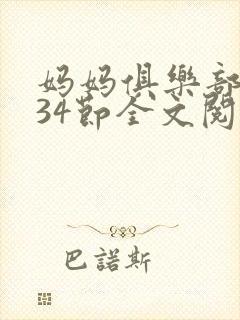 妈妈俱樂部
34節全文閱
巴諾斯